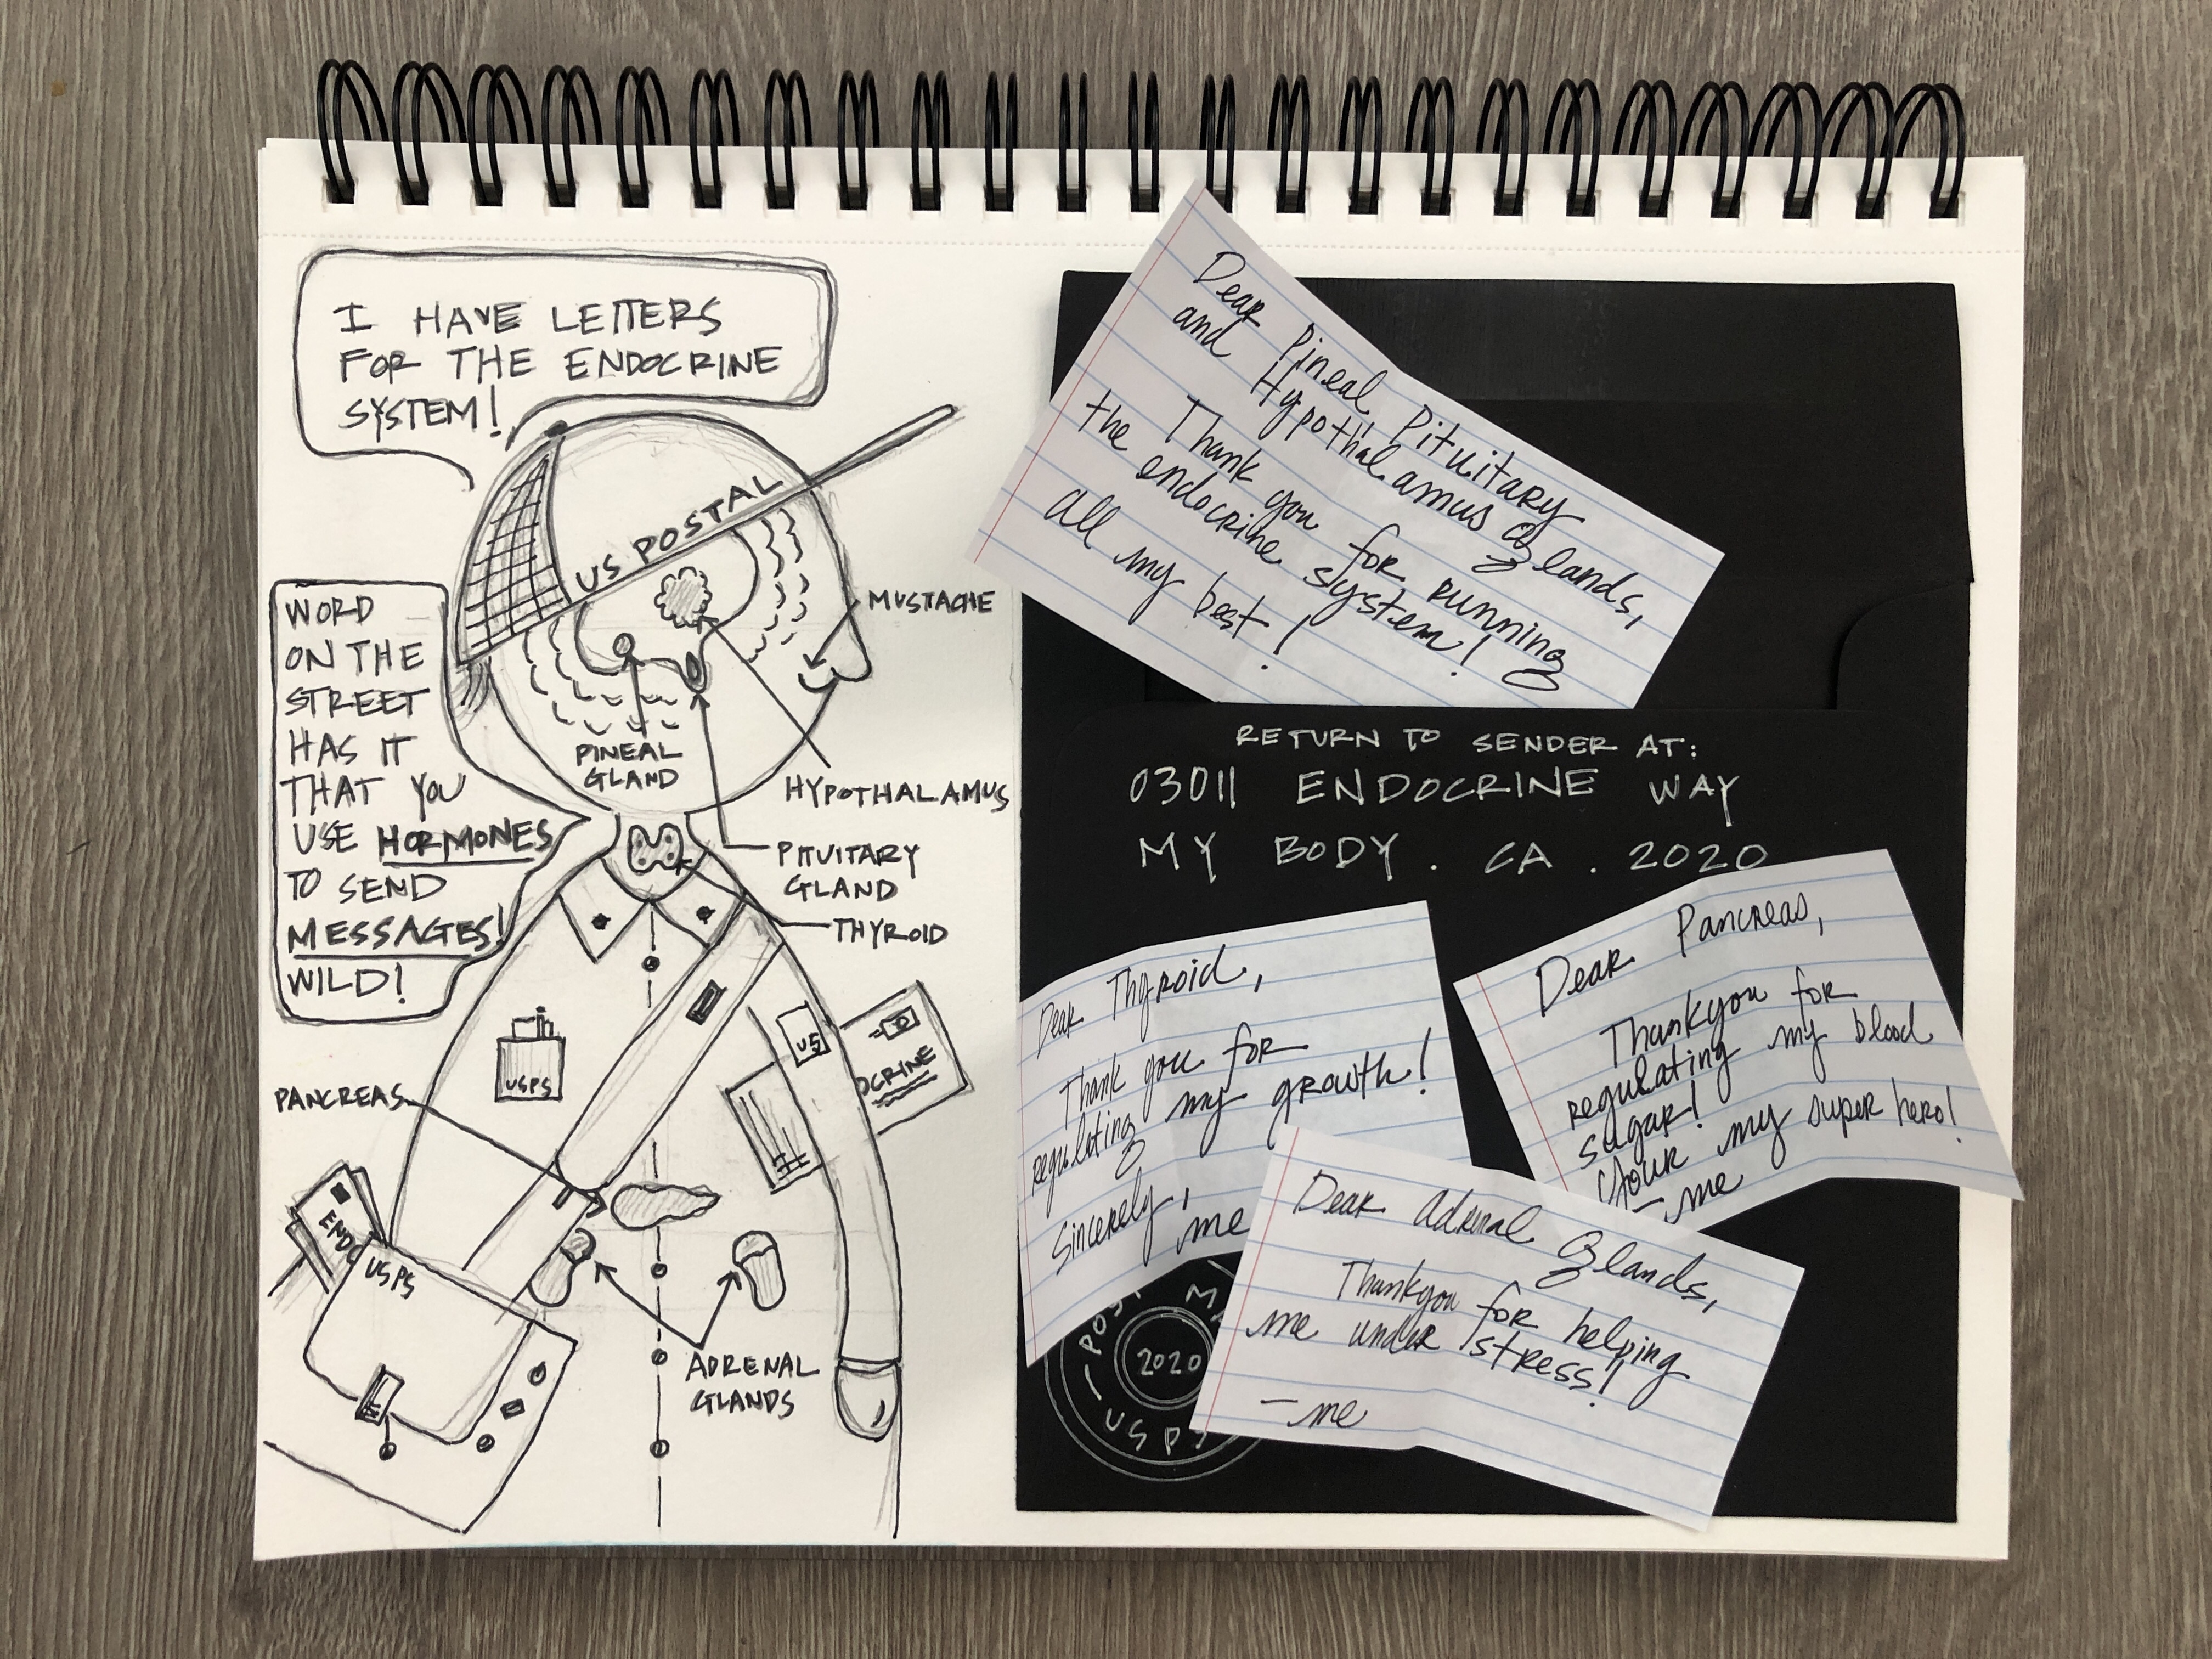 I HAVE LETTERS
FOR THE ENDOCRINE
SYSTEM!
US POSTAL
WORD
ON THE
STREET
HAS IT
THAT YOU
USE HORMONES
TO SEND
MESSAGES!
WILD!
MUSTACHE
PINEAL
GLAND
HYPOTHALAMUS
PITUITARY
GLAND
THYROID
USPS
US
OCRINE
PANCREAS
ENDO
USPS
ADRENAL
GLANDS
Dear Pineal Pituitary
and Hypothalamus Glands,
Thank you for running
the endocrine system!
All my best!
RETURN TO SENDER AT:
03011 ENDOCRINE WAY
MY BODY. CA. 2020
Dear Thyroid,
Thank you for
regulating my growth!
Sincerely,
me
Dear Pancreas,
Thankyou for
regulating my blood
sugar!
Your my super hero!
-me
Dear Adrenal Glands,
Thankyou for helping
me under stress!
-me
POST M
2020
USPS